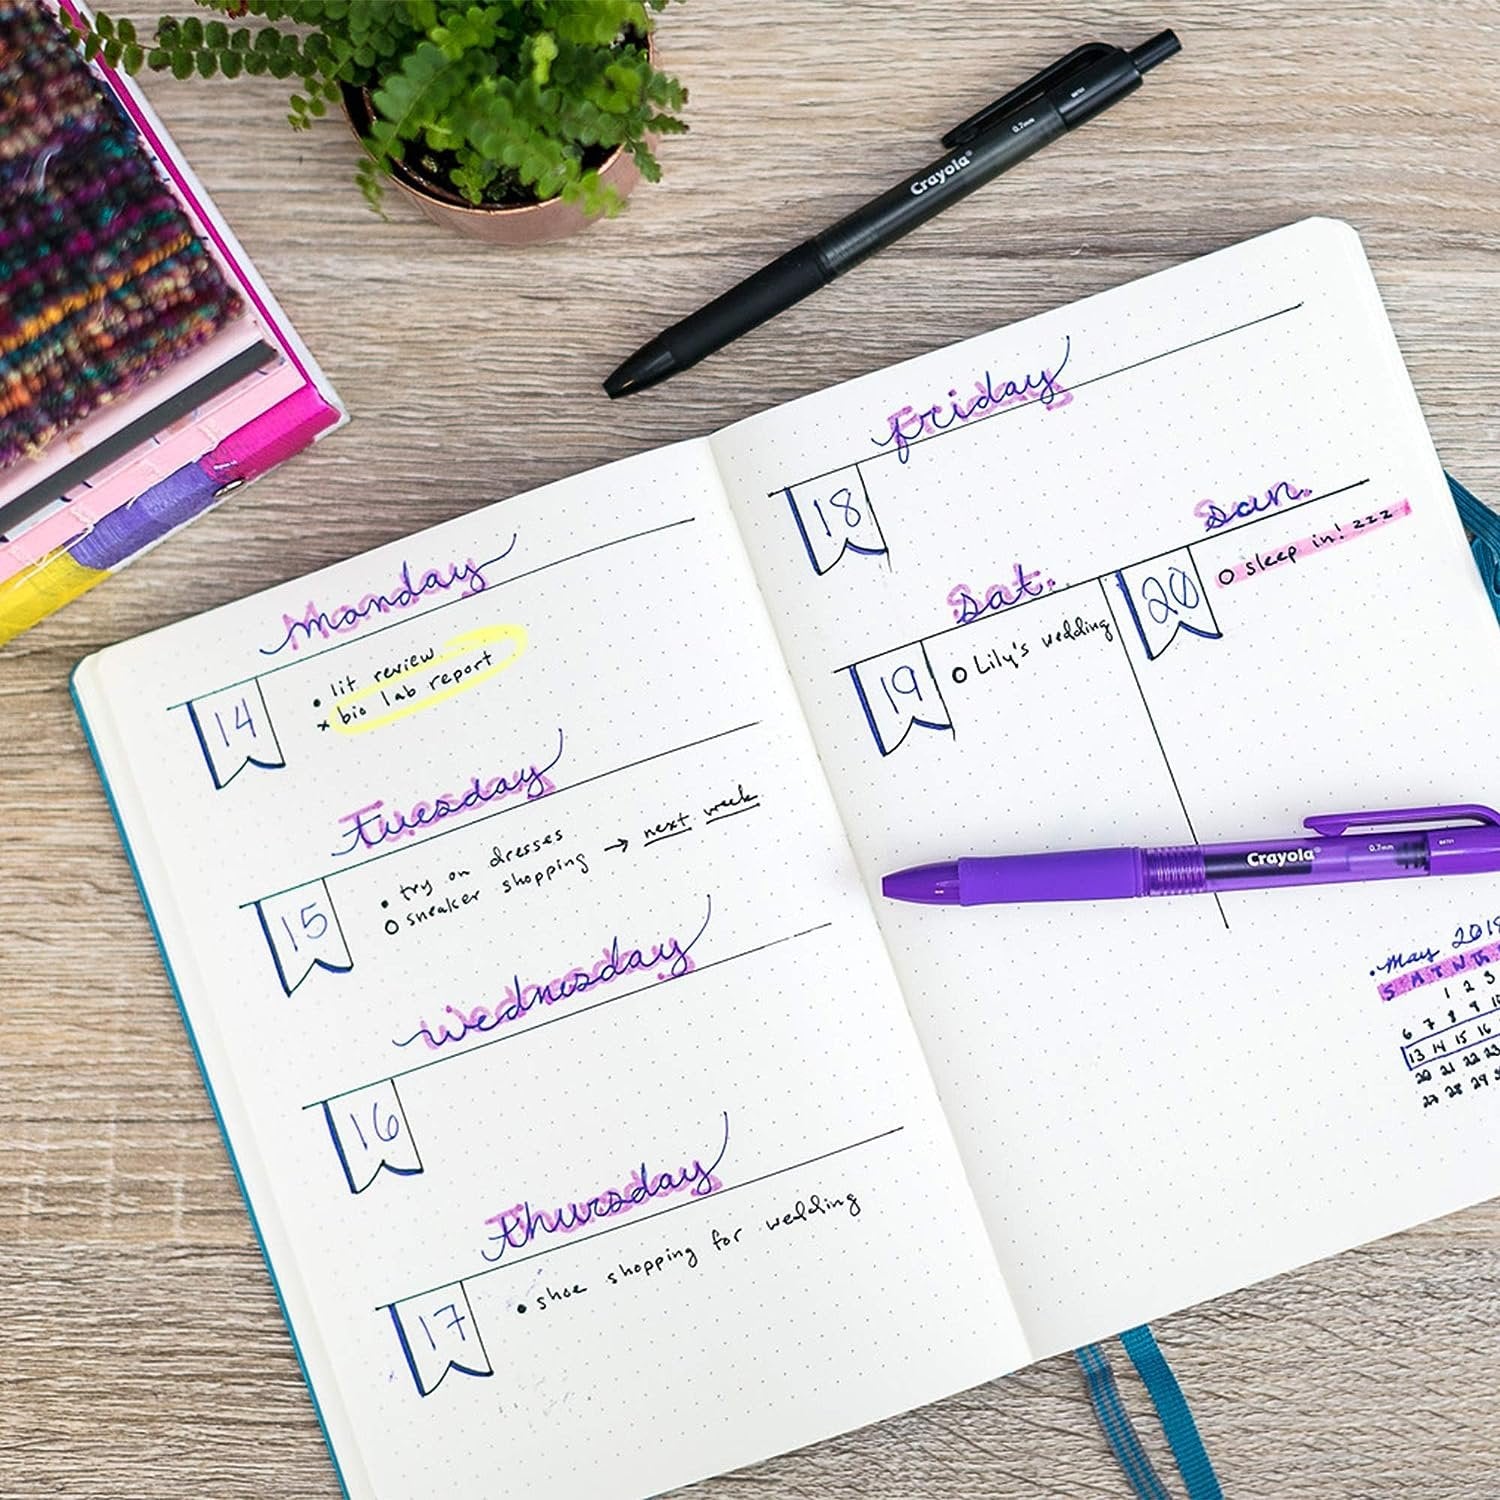 Crayola®
0.7mm
Monday
14
• lit review
x bio lab report
Tuesday
15
• try on dresses
o sneaker shopping → next week
Wednesday
16
Thursday
17
• shoe shopping for wedding
Friday
18
Sat.
19
o Lily's wedding
Sun.
20
o sleep in! zzz
Crayola®
0.7mm
• May 2018
S M T W Th
1 2 3
6 7 8 9 10
13 14 15 16
20 21 22 23
27 28 29 30